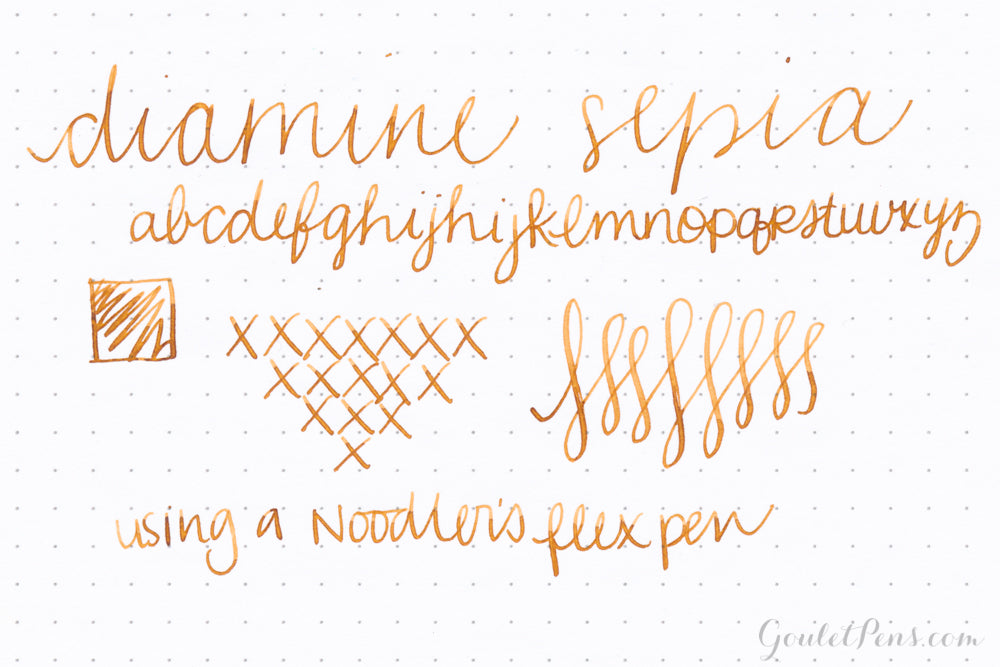 diamine sepia
abcdefghijhijklmnopqrstuvxyz
X X X X X X X
X X X X X
X X X
X
using a Noodler's flex pen
GouletPens.com